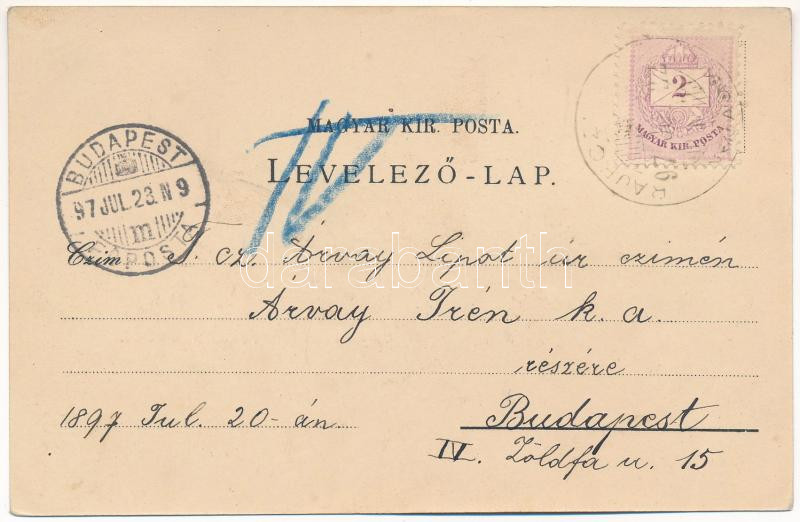 2
MAGYAR KIR. POSTA
MAGYAR KIR. POSTA.
LEVELEZŐ-LAP.
BUDAPEST
97 JUL. 23. N 9
m
FŐPOSTA
IV
Czim S. cz. Árvay Lipót úr czimén
darabanth
Árvay Irén k. a.
részére
1897 Jul. 20-án
Budapest
IV. Zöldfa u. 15